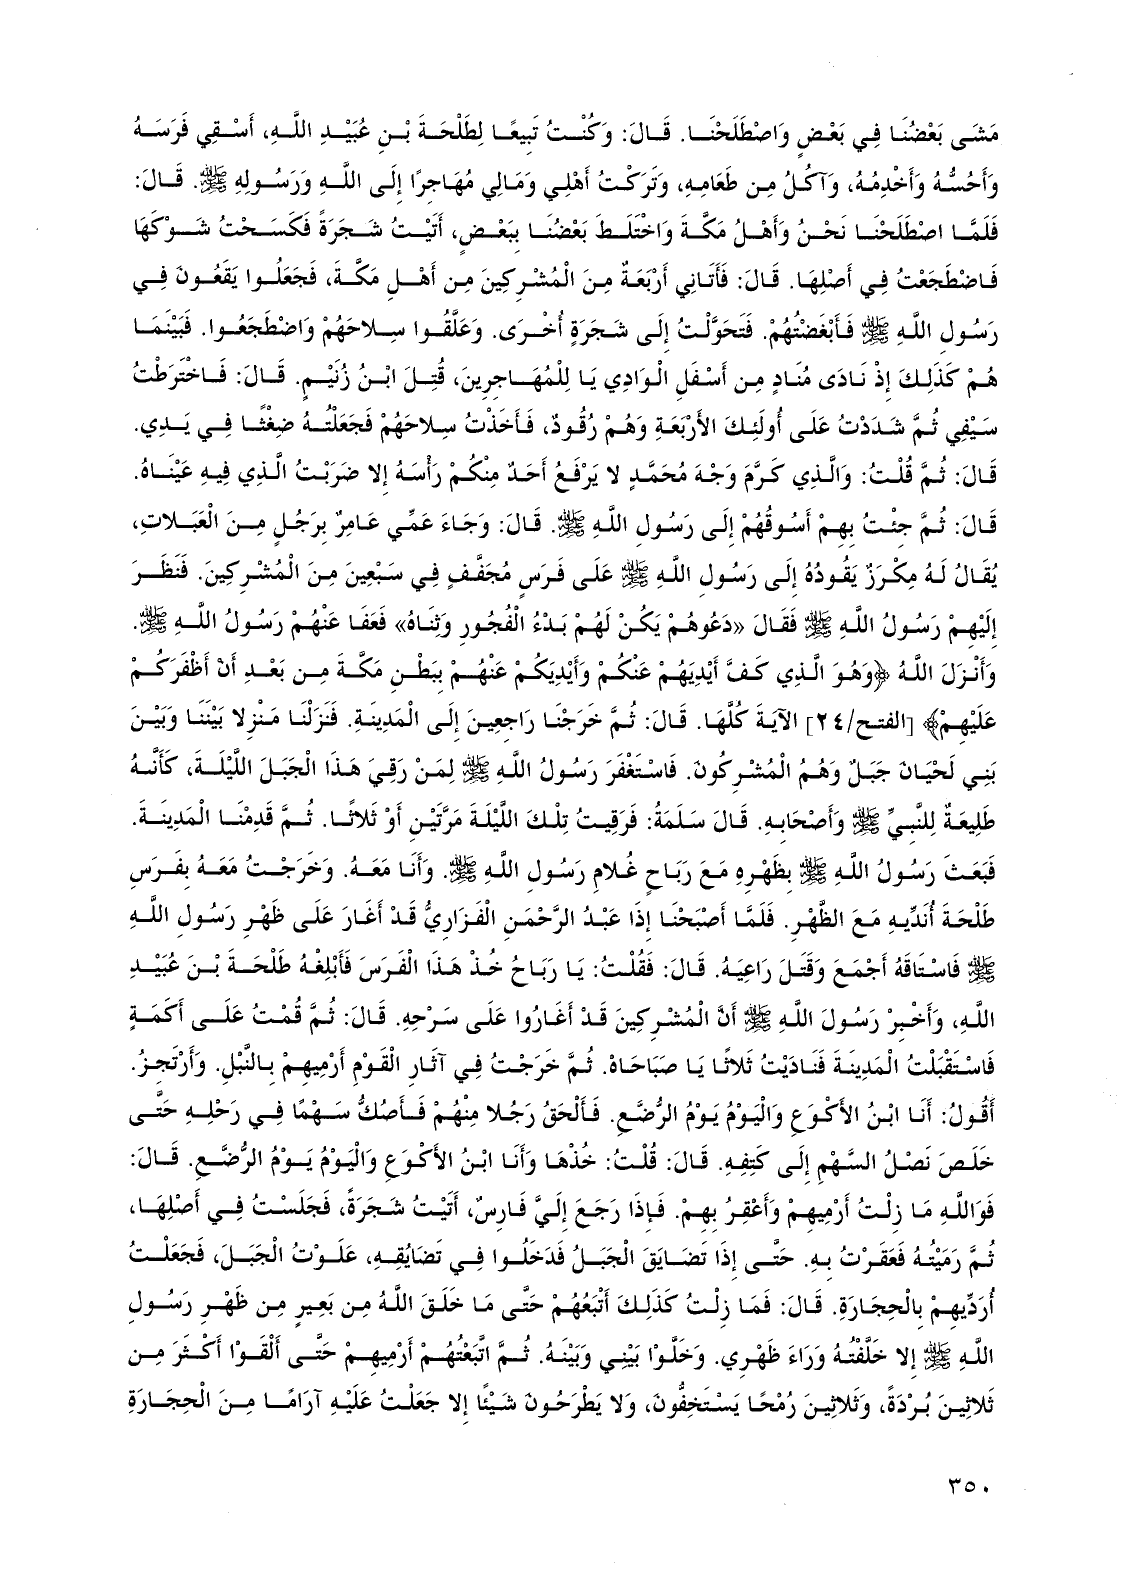 مَشَى بَعْضُنَا فِي بَعْضٍ وَاصْطَلَحْنَا. قَالَ: وَكُنْتُ تَبِيعًا لِطَلْحَةَ بْنِ عُبَيْدِ اللَّهِ، أَسْقِي فَرَسَهُ
وَأَحُسُّهُ وَأَخْدِمُهُ، وَآكُلُ مِن طَعَامِهِ، وَتَرَكْتُ أَهْلِي وَمَالِي مُهَاجِرًا إِلَى اللَّهِ وَرَسُولِهِ ﷺ. قَالَ:
فَلَمَّا اصْطَلَحْنَا نَحْنُ وَأَهْلُ مَكَّةَ وَاخْتَلَطَ بَعْضُنَا بِبَعْضٍ، أَتَيْتُ شَجَرَةً فَكَسَحْتُ شَوْكَهَا
فَاضْطَجَعْتُ فِي أَصْلِهَا. قَالَ: فَأَتَانِي أَرْبَعَةٌ مِنَ الْمُشْرِكِينَ مِن أَهْلِ مَكَّةَ، فَجَعَلُوا يَقَعُونَ فِي
رَسُولِ اللَّهِ ﷺ فَأَبْغَضْتُهُمْ. فَتَحَوَّلْتُ إِلَى شَجَرَةٍ أُخْرَى. وَعَلَّقُوا سِلاحَهُمْ وَاضْطَجَعُوا. فَبَيْنَمَا
هُمْ كَذَلِكَ إِذْ نَادَى مُنَادٍ مِن أَسْفَلِ الْوَادِي يَا لِلْمُهَاجِرِينَ، قُتِلَ ابْنُ زُنَيْمٍ. قَالَ: فَاخْتَرَطْتُ
سَيْفِي ثُمَّ شَدَدْتُ عَلَى أُولَئِكَ الأَرْبَعَةِ وَهُمْ رُقُودٌ، فَأَخَذْتُ سِلاحَهُمْ فَجَعَلْتُهُ ضِغْثًا فِي يَدِي.
قَالَ: ثُمَّ قُلْتُ: وَالَّذِي كَرَّمَ وَجْهَ مُحَمَّدٍ لا يَرْفَعُ أَحَدٌ مِنْكُمْ رَأْسَهُ إِلا ضَرَبْتُ الَّذِي فِيهِ عَيْنَاهُ.
قَالَ: ثُمَّ جِئْتُ بِهِمْ أَسُوقُهُمْ إِلَى رَسُولِ اللَّهِ ﷺ. قَالَ: وَجَاءَ عَمِّي عَامِرٌ بِرَجُلٍ مِنَ الْعَبَلاتِ،
يُقَالُ لَهُ مِكْرَزٌ يَقُودُهُ إِلَى رَسُولِ اللَّهِ ﷺ عَلَى فَرَسٍ مُجَفَّفٍ فِي سَبْعِينَ مِنَ الْمُشْرِكِينَ. فَنَظَرَ
إِلَيْهِمْ رَسُولُ اللَّهِ ﷺ فَقَالَ «دَعُوهُمْ يَكُنْ لَهُمْ بَدْءُ الْفُجُورِ وَثِنَاهُ» فَعَفَا عَنْهُمْ رَسُولُ اللَّهِ ﷺ.
وَأَنْزَلَ اللَّهُ ﴿وَهُوَ الَّذِي كَفَّ أَيْدِيَهُمْ عَنْكُمْ وَأَيْدِيَكُمْ عَنْهُمْ بِبَطْنِ مَكَّةَ مِن بَعْدِ أَنْ أَظْفَرَكُمْ
عَلَيْهِمْ﴾ [الفتح/٢٤] الآيَةَ كُلَّهَا. قَالَ: ثُمَّ خَرَجْنَا رَاجِعِينَ إِلَى الْمَدِينَةِ. فَنَزَلْنَا مَنْزِلا بَيْنَنَا وَبَيْنَ
بَنِي لَحْيَانَ جَبَلٌ وَهُمُ الْمُشْرِكُونَ. فَاسْتَغْفَرَ رَسُولُ اللَّهِ ﷺ لِمَنْ رَقِيَ هَذَا الْجَبَلَ اللَّيْلَةَ، كَأَنَّهُ
طَلِيعَةٌ لِلنَّبِيِّ ﷺ وَأَصْحَابِهِ. قَالَ سَلَمَةُ: فَرَقِيتُ تِلْكَ اللَّيْلَةَ مَرَّتَيْنِ أَوْ ثَلاثًا. ثُمَّ قَدِمْنَا الْمَدِينَةَ.
فَبَعَثَ رَسُولُ اللَّهِ ﷺ بِظَهْرِهِ مَعَ رَبَاحٍ غُلامِ رَسُولِ اللَّهِ ﷺ. وَأَنَا مَعَهُ. وَخَرَجْتُ مَعَهُ بِفَرَسِ
طَلْحَةَ أُنَدِّيهِ مَعَ الظَّهْرِ. فَلَمَّا أَصْبَحْنَا إِذَا عَبْدُ الرَّحْمَنِ الْفَزَارِيُّ قَدْ أَغَارَ عَلَى ظَهْرِ رَسُولِ اللَّهِ
ﷺ فَاسْتَاقَهُ أَجْمَعَ وَقَتَلَ رَاعِيَهُ. قَالَ: فَقُلْتُ: يَا رَبَاحُ خُذْ هَذَا الْفَرَسَ فَأَبْلِغْهُ طَلْحَةَ بْنَ عُبَيْدِ
اللَّهِ، وَأَخْبِرْ رَسُولَ اللَّهِ ﷺ أَنَّ الْمُشْرِكِينَ قَدْ أَغَارُوا عَلَى سَرْحِهِ. قَالَ: ثُمَّ قُمْتُ عَلَى أَكَمَةٍ
فَاسْتَقْبَلْتُ الْمَدِينَةَ فَنَادَيْتُ ثَلاثًا يَا صَبَاحَاهْ. ثُمَّ خَرَجْتُ فِي آثَارِ الْقَوْمِ أَرْمِيهِمْ بِالنَّبْلِ. وَأَرْتَجِزُ.
أَقُولُ: أَنَا ابْنُ الأَكْوَعِ وَالْيَوْمُ يَوْمُ الرُّضَّعِ. فَأَلْحَقُ رَجُلا مِنْهُمْ فَأَصُكُّ سَهْمًا فِي رَحْلِهِ حَتَّى
خَلَصَ نَصْلُ السَّهْمِ إِلَى كَتِفِهِ. قَالَ: قُلْتُ: خُذْهَا وَأَنَا ابْنُ الأَكْوَعِ وَالْيَوْمُ يَوْمُ الرُّضَّعِ. قَالَ:
فَوَاللَّهِ مَا زِلْتُ أَرْمِيهِمْ وَأَعْقِرُ بِهِمْ. فَإِذَا رَجَعَ إِلَيَّ فَارِسٌ، أَتَيْتُ شَجَرَةً، فَجَلَسْتُ فِي أَصْلِهَا،
ثُمَّ رَمَيْتُهُ فَعَقَرْتُ بِهِ. حَتَّى إِذَا تَضَايَقَ الْجَبَلُ فَدَخَلُوا فِي تَضَايُقِهِ، عَلَوْتُ الْجَبَلَ، فَجَعَلْتُ
أُرَدِّيهِمْ بِالْحِجَارَةِ. قَالَ: فَمَا زِلْتُ كَذَلِكَ أَتْبَعُهُمْ حَتَّى مَا خَلَقَ اللَّهُ مِن بَعِيرٍ مِن ظَهْرِ رَسُولِ
اللَّهِ ﷺ إِلا خَلَّفْتُهُ وَرَاءَ ظَهْرِي. وَخَلَّوْا بَيْنِي وَبَيْنَهُ. ثُمَّ اتَّبَعْتُهُمْ أَرْمِيهِمْ حَتَّى أَلْقَوْا أَكْثَرَ مِن
ثَلاثِينَ بُرْدَةً، وَثَلاثِينَ رُمْحًا يَسْتَخِفُّونَ، وَلا يَطْرَحُونَ شَيْئًا إِلا جَعَلْتُ عَلَيْهِ آرَامًا مِنَ الْحِجَارَةِ
٣٥٠